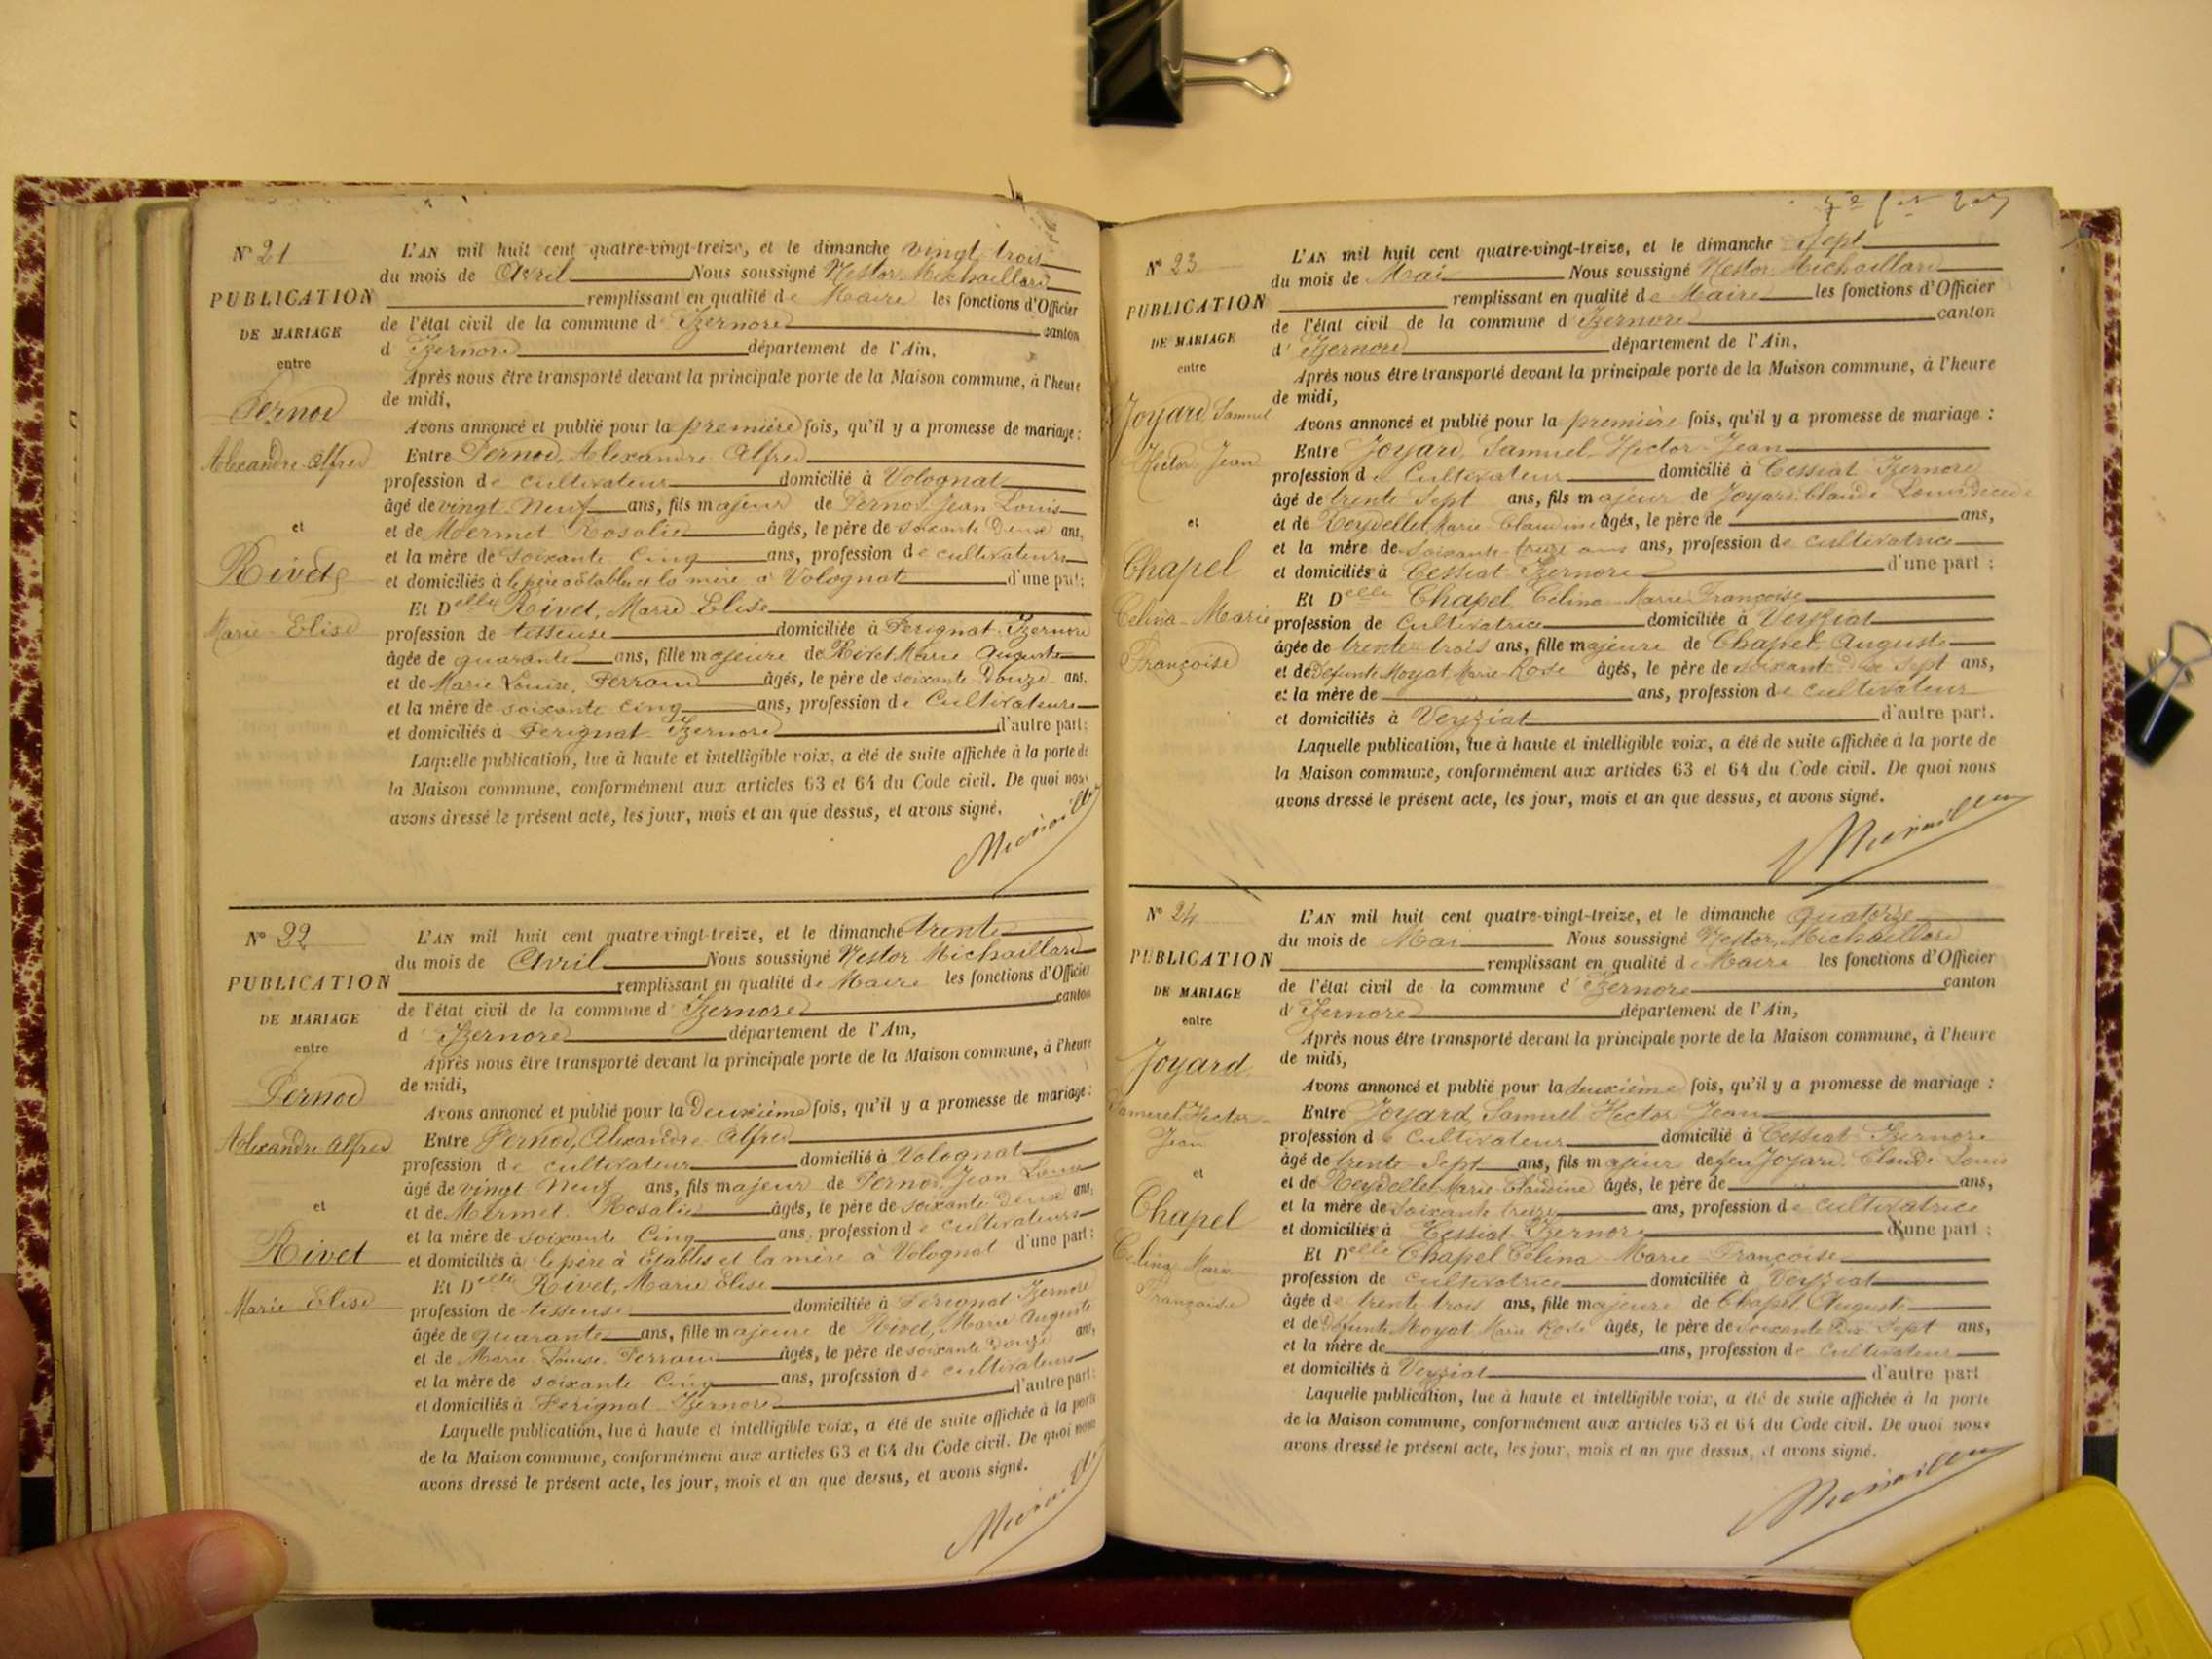 N° 21
PUBLICATION
DE MARIAGE
entre
Pernod
Alexandre Alfred
et
Rivet
Marie Elise
L'AN mil huit cent quatre-vingt-treize, et le dimanche vingt trois
du mois de Avril Nous soussigné Nestor Michaillard
remplissant en qualité de Maire les fonctions d'Officier
de l'état civil de la commune d'Izernore canton
d'Izernore département de l'Ain,
Après nous être transporté devant la principale porte de la Maison commune, à l'heure
de midi,
Avons annoncé et publié pour la première fois, qu'il y a promesse de mariage :
Entre Pernod, Alexandre Alfred
profession de cultivateur domicilié à Volognat
âgé de vingt Neuf ans, fils majeur de Pernod Jean Louis
et de Mermet Rosalie âgés, le père de soixante Deux ans,
et la mère de soixante Cinq ans, profession de cultivateurs
et domiciliés à le père à Etables et la mère à Volognat d'une part ;
Et Delle Rivet, Marie Elise
profession de tisseuse domiciliée à Perignat Izernore
âgée de quarante ans, fille majeure de Rivet Marie Auguste
et de Marie Louise, Perraud âgés, le père de soixante Douze ans,
et la mère de soixante cinq ans, profession de Cultivateurs
et domiciliés à Perignat Izernore d'autre part ;
Laquelle publication, lue à haute et intelligible voix, a été de suite affichée à la porte de
la Maison commune, conformément aux articles 63 et 64 du Code civil. De quoi nous
avons dressé le présent acte, les jour, mois et an que dessus, et avons signé.
N° 22
PUBLICATION
DE MARIAGE
entre
Pernod
Alexandre Alfred
et
Rivet
Marie Elise
L'AN mil huit cent quatre-vingt-treize, et le dimanche trente
du mois de Avril Nous soussigné Nestor Michaillard
remplissant en qualité de Maire les fonctions d'Officier
de l'état civil de la commune d'Izernore canton
d'Izernore département de l'Ain,
Après nous être transporté devant la principale porte de la Maison commune, à l'heure
de midi,
Avons annoncé et publié pour la Deuxième fois, qu'il y a promesse de mariage :
Entre Pernod, Alexandre Alfred
profession de cultivateur domicilié à Volognat
âgé de vingt Neuf ans, fils majeur de Pernod Jean Louis
et de Mermet Rosalie âgés, le père de soixante Deux ans,
et la mère de soixante Cinq ans, profession de cultivateurs
et domiciliés à le père à Etables et la mère à Volognat d'une part ;
Et Delle Rivet, Marie Elise
profession de tisseuse domiciliée à Perignat Izernore
âgée de quarante ans, fille majeure de Rivet, Marie Auguste
et de Marie Louise Perraud âgés, le père de soixante Douze ans,
et la mère de soixante Cinq ans, profession de cultivateurs
et domiciliés à Perignat Izernore d'autre part ;
Laquelle publication, lue à haute et intelligible voix, a été de suite affichée à la porte
de la Maison commune, conformément aux articles 63 et 64 du Code civil. De quoi nous
avons dressé le présent acte, les jour, mois et an que dessus, et avons signé.
N° 23
PUBLICATION
DE MARIAGE
entre
Joyard Samuel
Hector Jean
et
Chapel
Celina Marie
Françoise
L'AN mil huit cent quatre-vingt-treize, et le dimanche Sept
du mois de Mai Nous soussigné Nestor Michaillard
remplissant en qualité de Maire les fonctions d'Officier
de l'état civil de la commune d'Izernore canton
d'Izernore département de l'Ain,
Après nous être transporté devant la principale porte de la Maison commune, à l'heure
de midi,
Avons annoncé et publié pour la première fois, qu'il y a promesse de mariage :
Entre Joyard, Samuel Hector Jean
profession de Cultivateur domicilié à Cessiat Izernore
âgé de trente Sept ans, fils majeur de Joyard Claude Louis Décédé
et de Reydellet Marie Claudine âgés, le père de ans,
et la mère de soixante treize ans ans, profession de cultivatrice
et domiciliés à Cessiat Izernore d'une part ;
Et Delle Chapel, Célina Marie Françoise
profession de Cultivatrice domiciliée à Veyziat
âgée de trente trois ans, fille majeure de Chapel Auguste
et de Défunte Moyat Marie Rose âgés, le père de soixante Dix Sept ans,
et la mère de ans, profession de cultivateur
et domiciliés à Veyziat d'autre part.
Laquelle publication, lue à haute et intelligible voix, a été de suite affichée à la porte de
la Maison commune, conformément aux articles 63 et 64 du Code civil. De quoi nous
avons dressé le présent acte, les jour, mois et an que dessus, et avons signé.
N° 24
PUBLICATION
DE MARIAGE
entre
Joyard
Samuel Hector
Jean
et
Chapel
Celina Marie
Françoise
L'AN mil huit cent quatre-vingt-treize, et le dimanche Quatorze
du mois de Mai Nous soussigné Nestor Michaillard
remplissant en qualité de Maire les fonctions d'Officier
de l'état civil de la commune d'Izernore canton
d'Izernore département de l'Ain,
Après nous être transporté devant la principale porte de la Maison commune, à l'heure
de midi,
Avons annoncé et publié pour la deuxième fois, qu'il y a promesse de mariage :
Entre Joyard, Samuel Hector Jean
profession de Cultivateur domicilié à Cessiat Izernore
âgé de trente Sept ans, fils majeur de feu Joyard Claude Louis
et de Reydellet Marie Claudine âgés, le père de ans,
et la mère de soixante treize ans, profession de cultivatrice
et domiciliés à Cessiat Izernore d'une part ;
Et Delle Chapel Célina Marie Françoise
profession de cultivatrice domiciliée à Veyziat
âgée de trente trois ans, fille majeure de Chapel Auguste
et de Défunte Moyat Marie Rose âgés, le père de soixante Dix Sept ans,
et la mère de ans, profession de Cultivateur
et domiciliés à Veyziat d'autre part
Laquelle publication, lue à haute et intelligible voix, a été de suite affichée à la porte
de la Maison commune, conformément aux articles 63 et 64 du Code civil. De quoi nous
avons dressé le présent acte, les jour, mois et an que dessus, et avons signé.